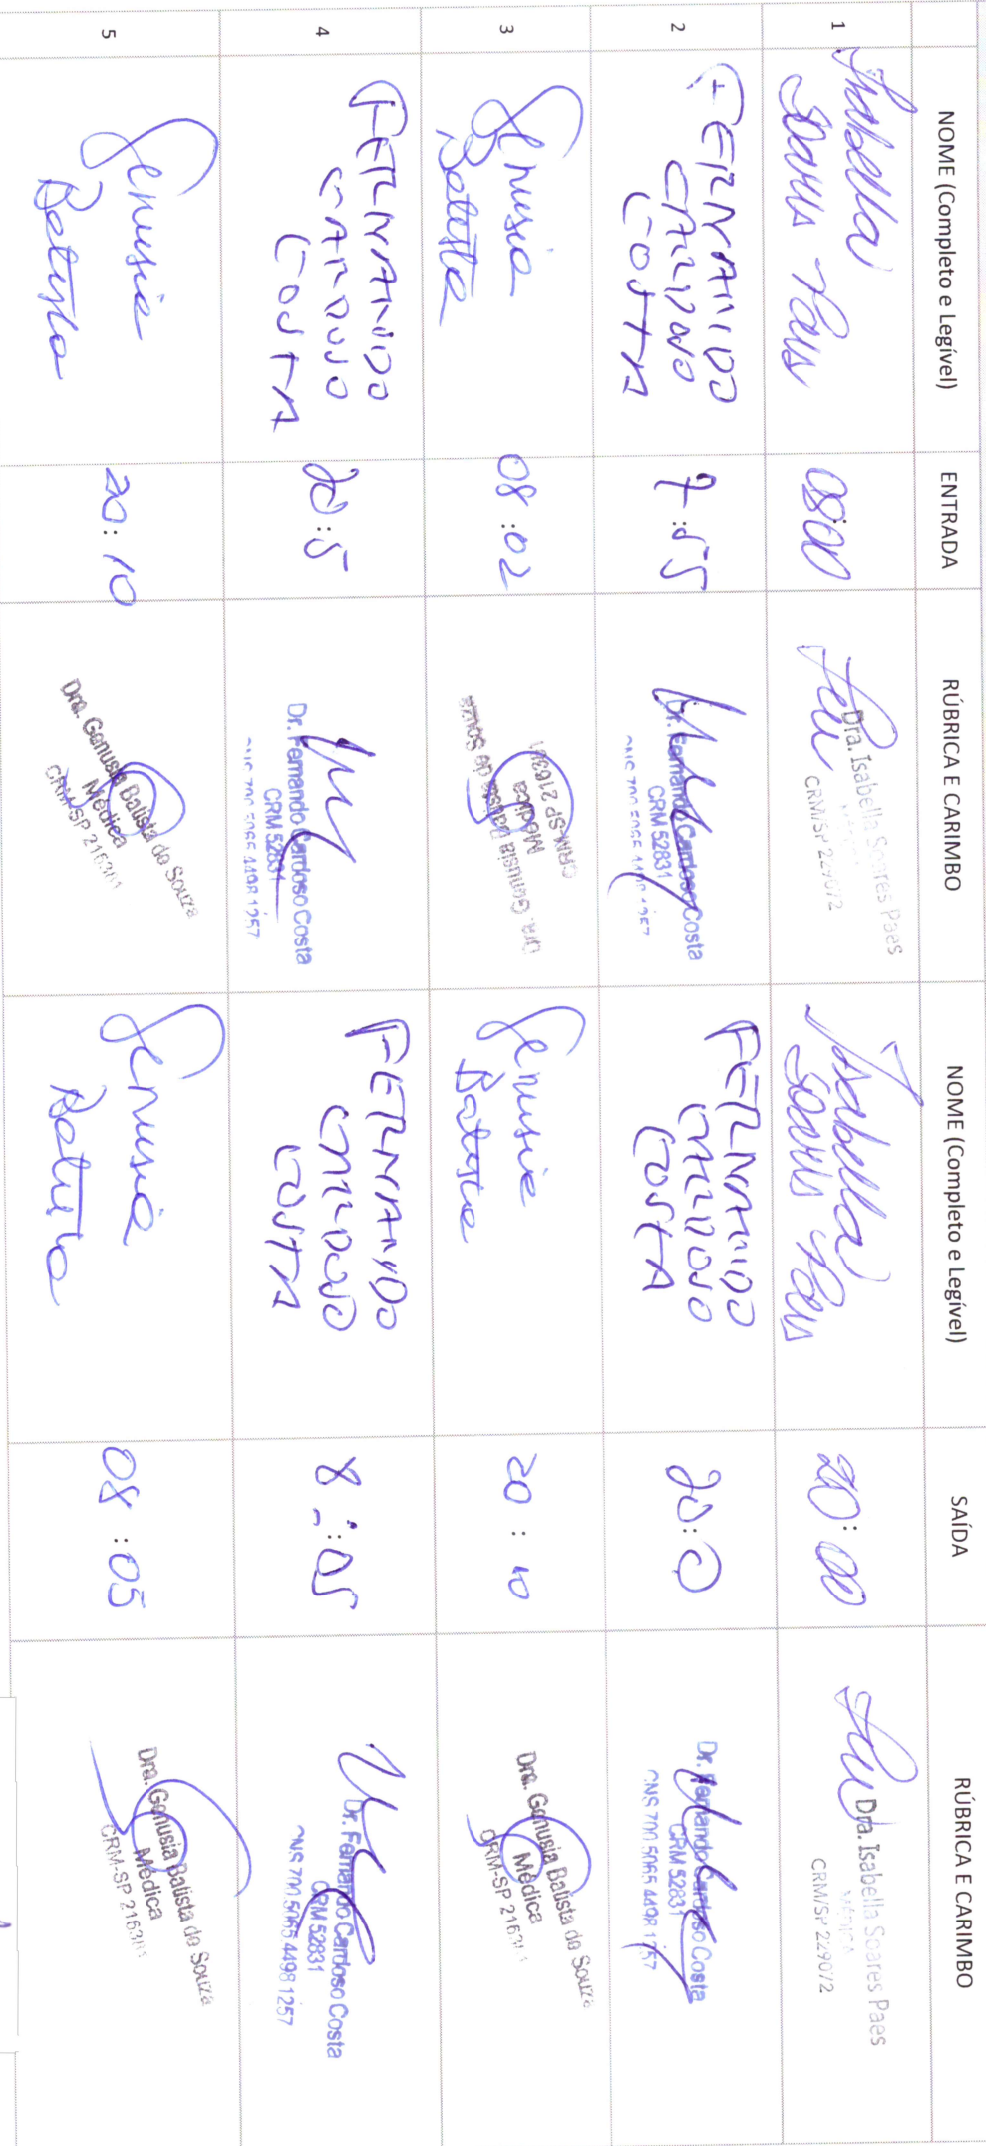 NOME (Completo e Legível) ENTRADA RÚBRICA E CARIMBO NOME (Completo e Legível) SAÍDA RÚBRICA E CARIMBO
1
Isabella
Soares Paes
08:00
Dra. Isabella Soares Paes
CRM/SP 229072
Isabella
Soares Paes
20:00
Dra. Isabella Soares Paes
MÉDICA
CRM/SP 229072
2
FERNANDO
CARDOSO
COSTA
7:55
Dr. Fernando Cardoso Costa
CRM 52831
CNS 700 5065 4498 1257
FERNANDO
CARDOSO
COSTA
20:0
Dr. Fernando Cardoso Costa
CRM 52831
CNS 700 5065 4498 1257
3
Genusia
Batista
08:02
Dra. Genusia Batista de Souza
Médica
CRM-SP 216301
Genusia
Batista
20:10
Dra. Genusia Batista de Souza
Médica
CRM-SP 216301
4
FERNANDO
CARDOSO
COSTA
20:5
Dr. Fernando Cardoso Costa
CRM 52831
CNS 700 5065 4498 1257
FERNANDO
CARDOSO
COSTA
8:05
Dr. Fernando Cardoso Costa
CRM 52831
CNS 700 5065 4498 1257
5
Genusia
Batista
20:10
Dra. Genusia Batista de Souza
Médica
CRM-SP 216301
Genusia
Batista
08:05
Dra. Genusia Batista de Souza
Médica
CRM-SP 216301